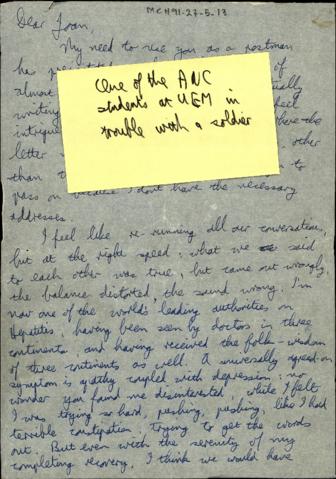 MCH91-27-5-13
Dear Joan,
My need to use you as a postman
has
of
almost
writing
intrigue
where the
letter
other
than
to
pass on because I don't have the necessary
addresses.
One of the ANC
students at UEM in
trouble with a soldier
I feel like re-running all our conversation,
but at the right speed; what we said
to each other was true, but came out wrongly,
the balance distorted, the sound wrong. I'm
now one of the world's leading authorities on
Hepatitis, having been seen by doctors in three
continents, and having received the folk-wisdom
of three continents as well. A universally agreed-on
symptom is apathy coupled with depression; no
wonder you found me disinterested, while I felt
I was trying so hard, pushing, pushing, like I had
terrible constipation, trying to get the words
out. But even with the serenity of my
completing recovery, I think we would have